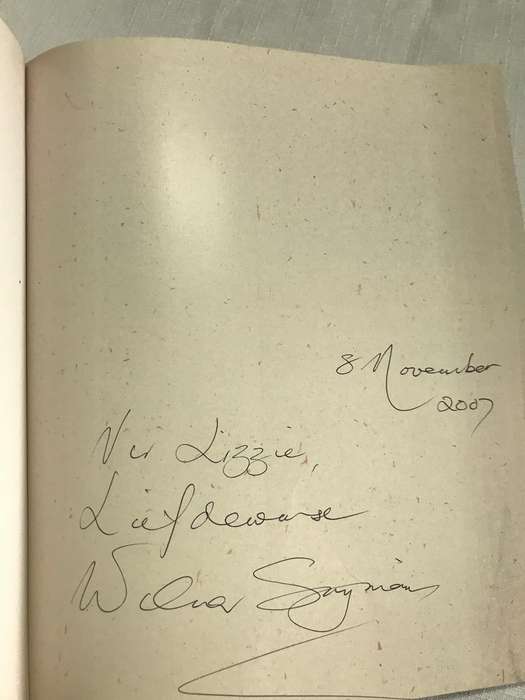 8 November
2007
Vir Lizzie,
Liefdewense
Wilna Snyman